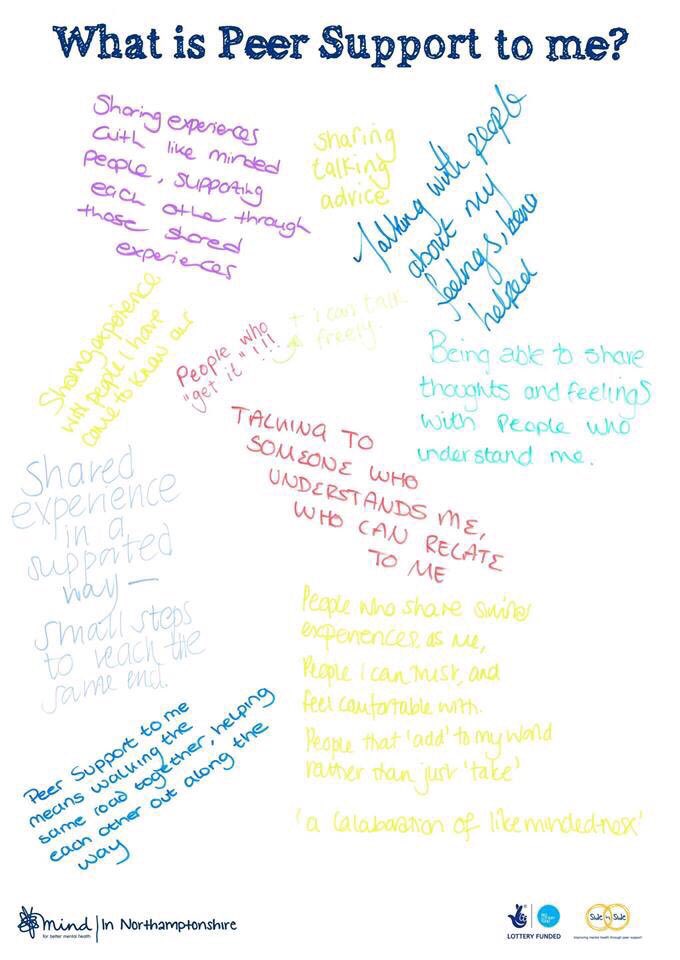 What is Peer Support to me?
Sharing experiences
with like minded
people, supporting
each othe through
those shared
experiences
sharing
talking
advice
Talking with people
about my
feelings, being
helped
Sharing experience
with people I have
came to know our
People who
"get it"!!!
+ i can talk
freely.
Being able to share
thoughts and feelings
with People who
understand me.
TALKING TO
SOMEONE WHO
UNDERSTANDS ME,
WHO CAN RELATE
TO ME
Shared
experience
in a
supported
way -
small steps
to reach the
same end.
People who share similar
experiences as me,
People I can trust, and
feel comfortable with.
People that 'add' to my world
rather than just 'take'
'a calabaration of likemindedness'
Peer Support to me
means walking the
same road together, helping
each other out along the
way
mind | In Northamptonshire
for better mental health
LOTTERY FUNDED
Side n Side
Improving mental health through peer support